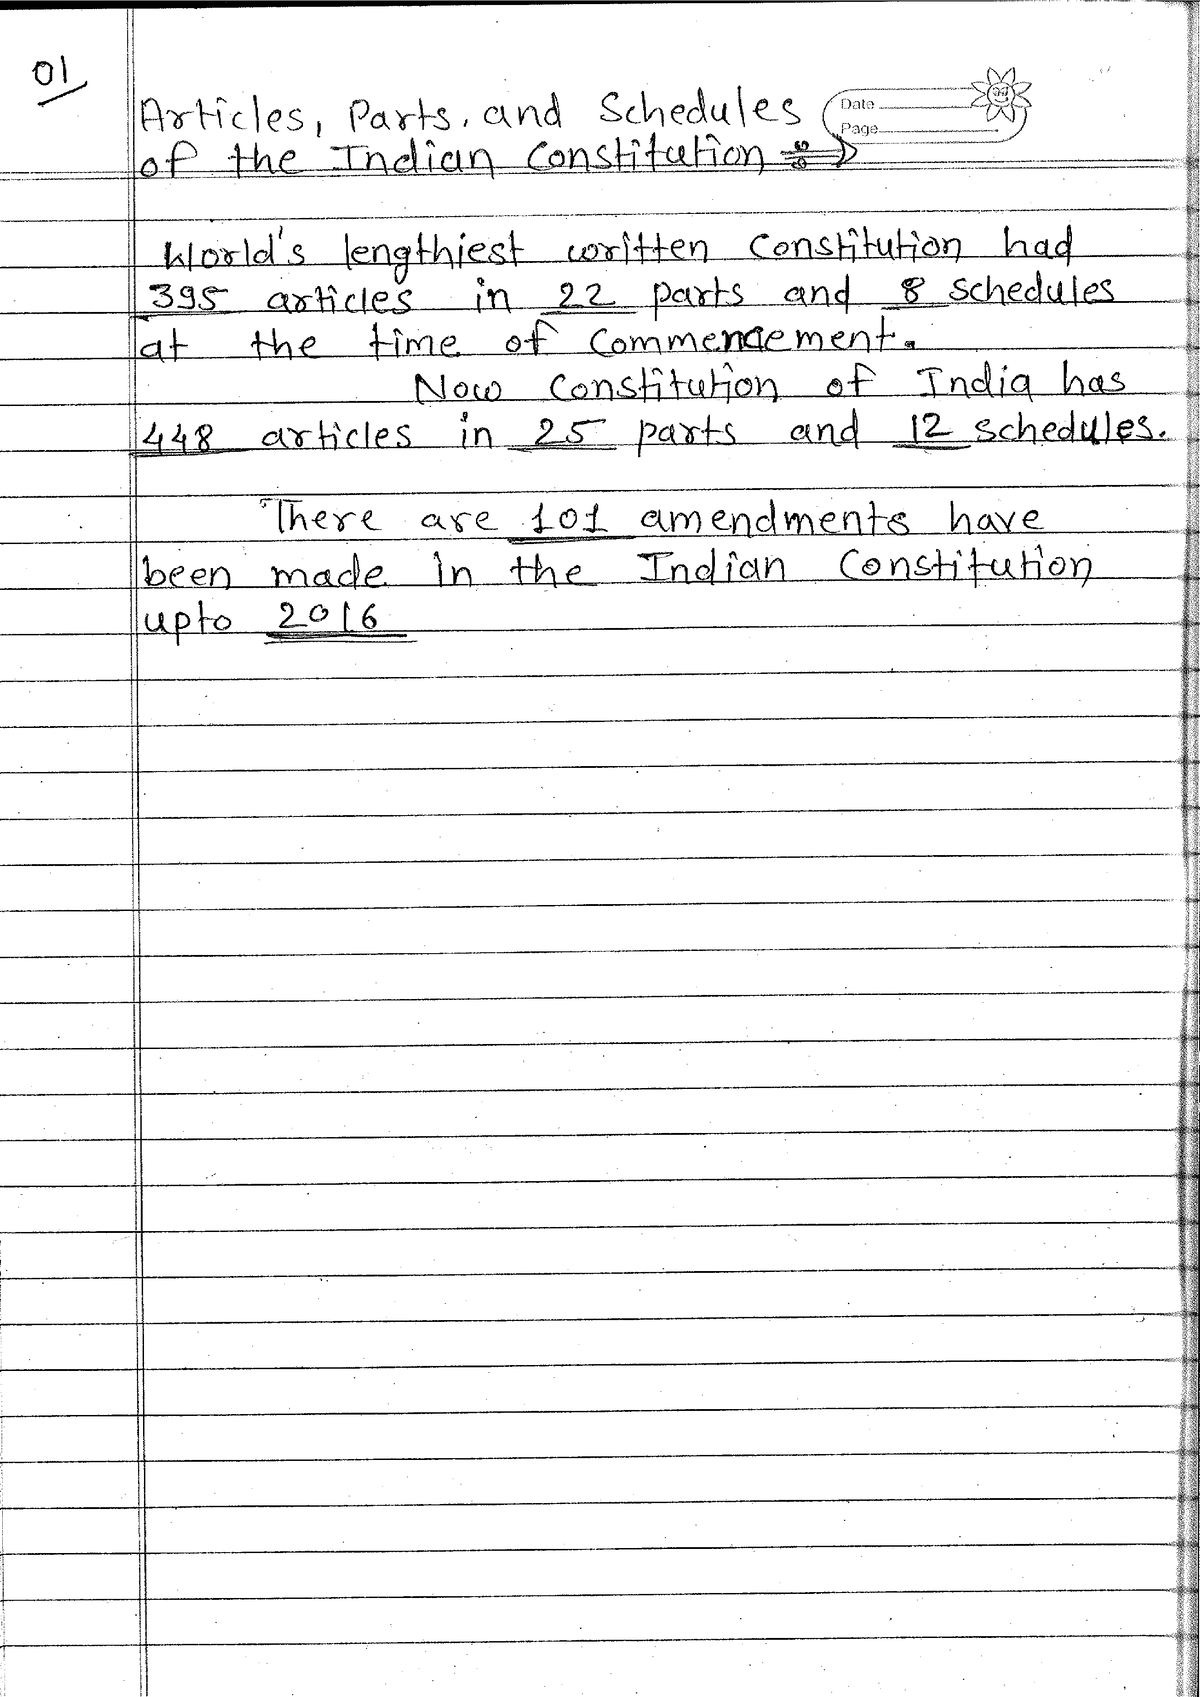 01
Articles, Parts, and Schedules
Date
Page
of the Indian Constitution
World's lengthiest written Constitution had
395 articles in 22 parts and 8 schedules
at the time of Commencement.
Now Constitution of India has
448 articles in 25 parts and 12 schedules.
There are 101 amendments have
been made in the Indian Constitution
upto 2016